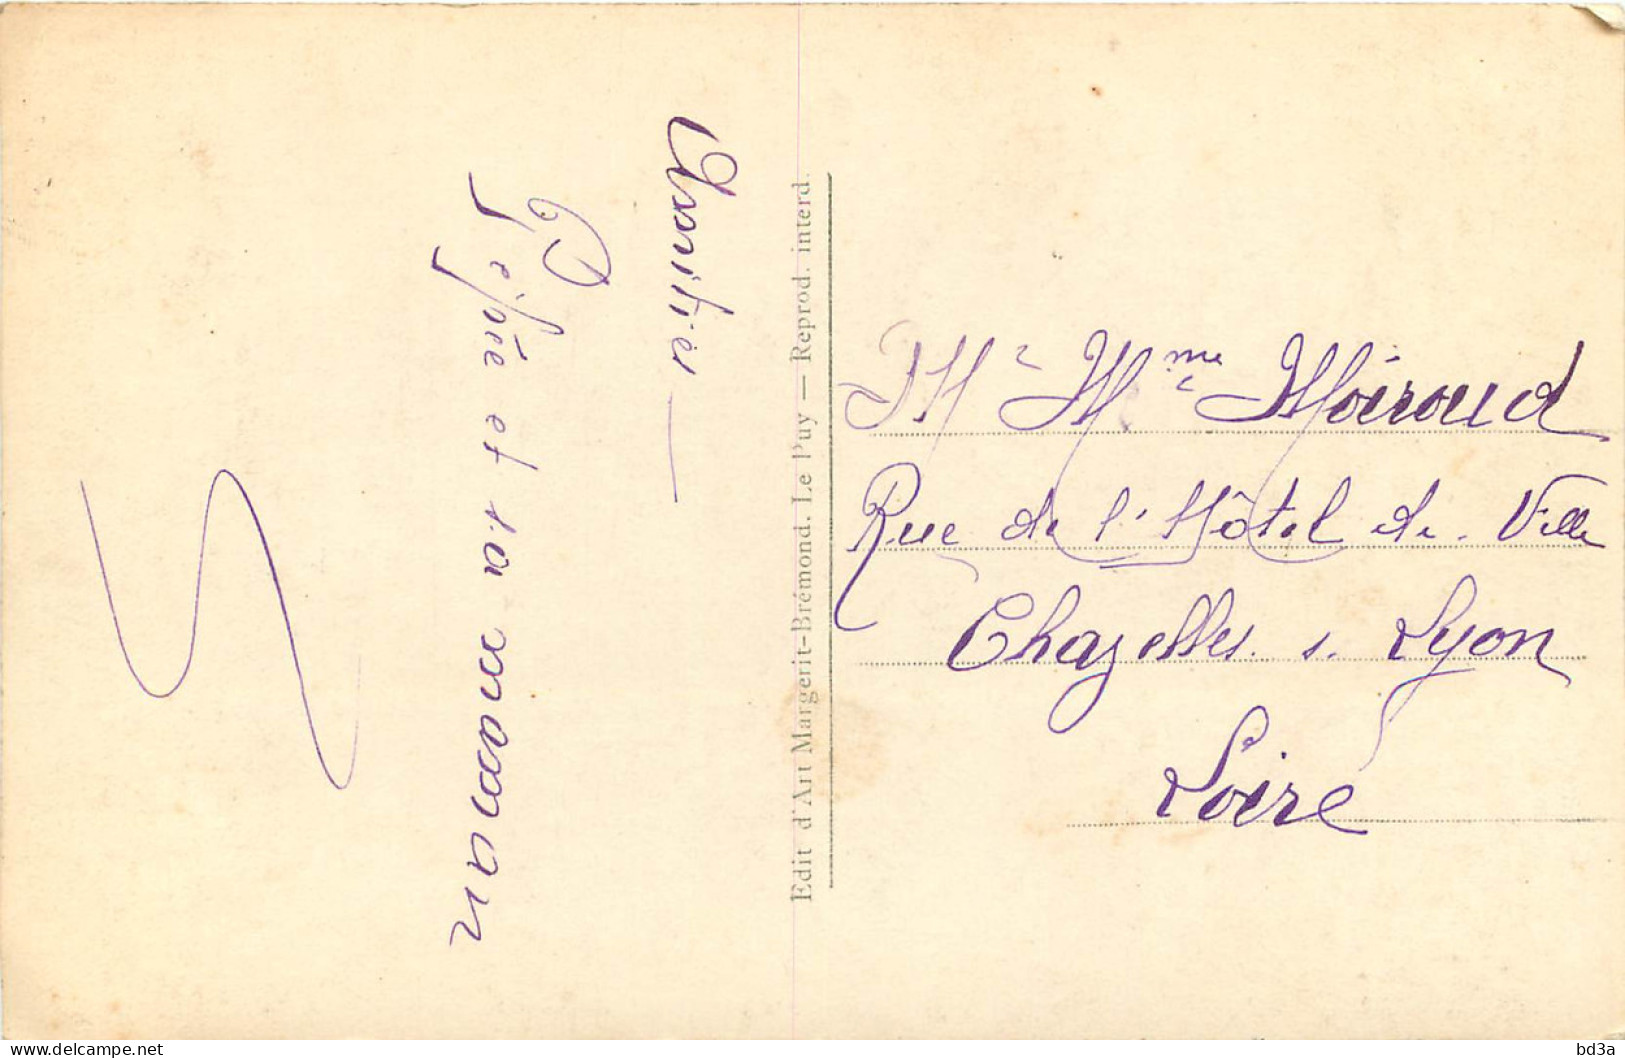 Amitiés
Pépée et sa maman
Edit d'Art Margerit-Brémond, Le Puy — Reprod. interd.
Mr Mme Moiroud
Rue de l'Hôtel de Ville
Chazelles s. Lyon
Loire
delcampe.net
bd3a